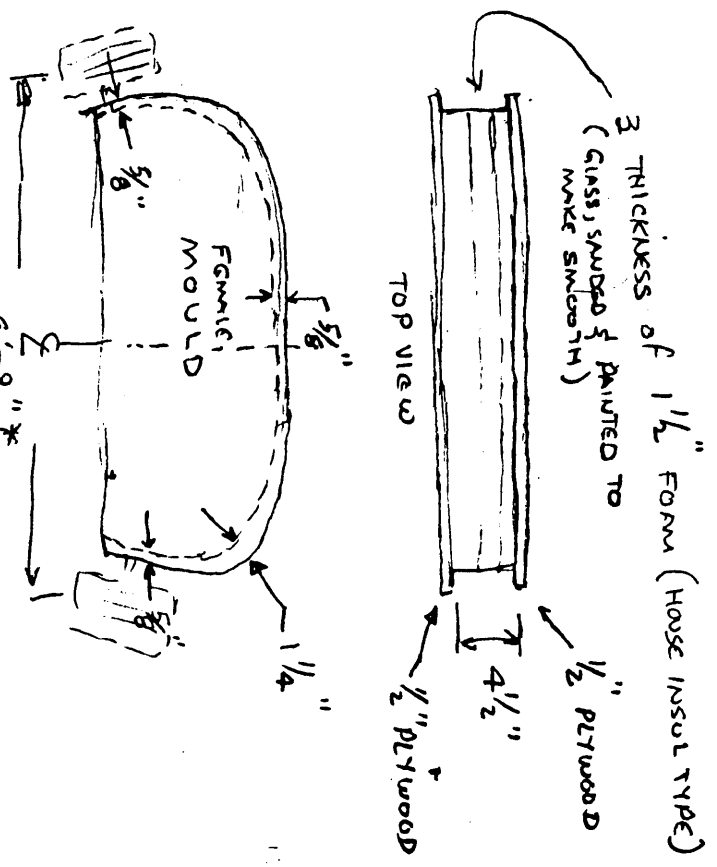 3 THICKNESS of 1 1/2" FOAM (HOUSE INSUL TYPE)
(GLASS, SANDED & PAINTED TO
MAKE SMOOTH)
1/2" PLYWOOD
4 1/2"
1/2" PLYWOOD
TOP VIEW
5/8"
5/8"
FEMALE
MOULD
1 1/4"
5/8"